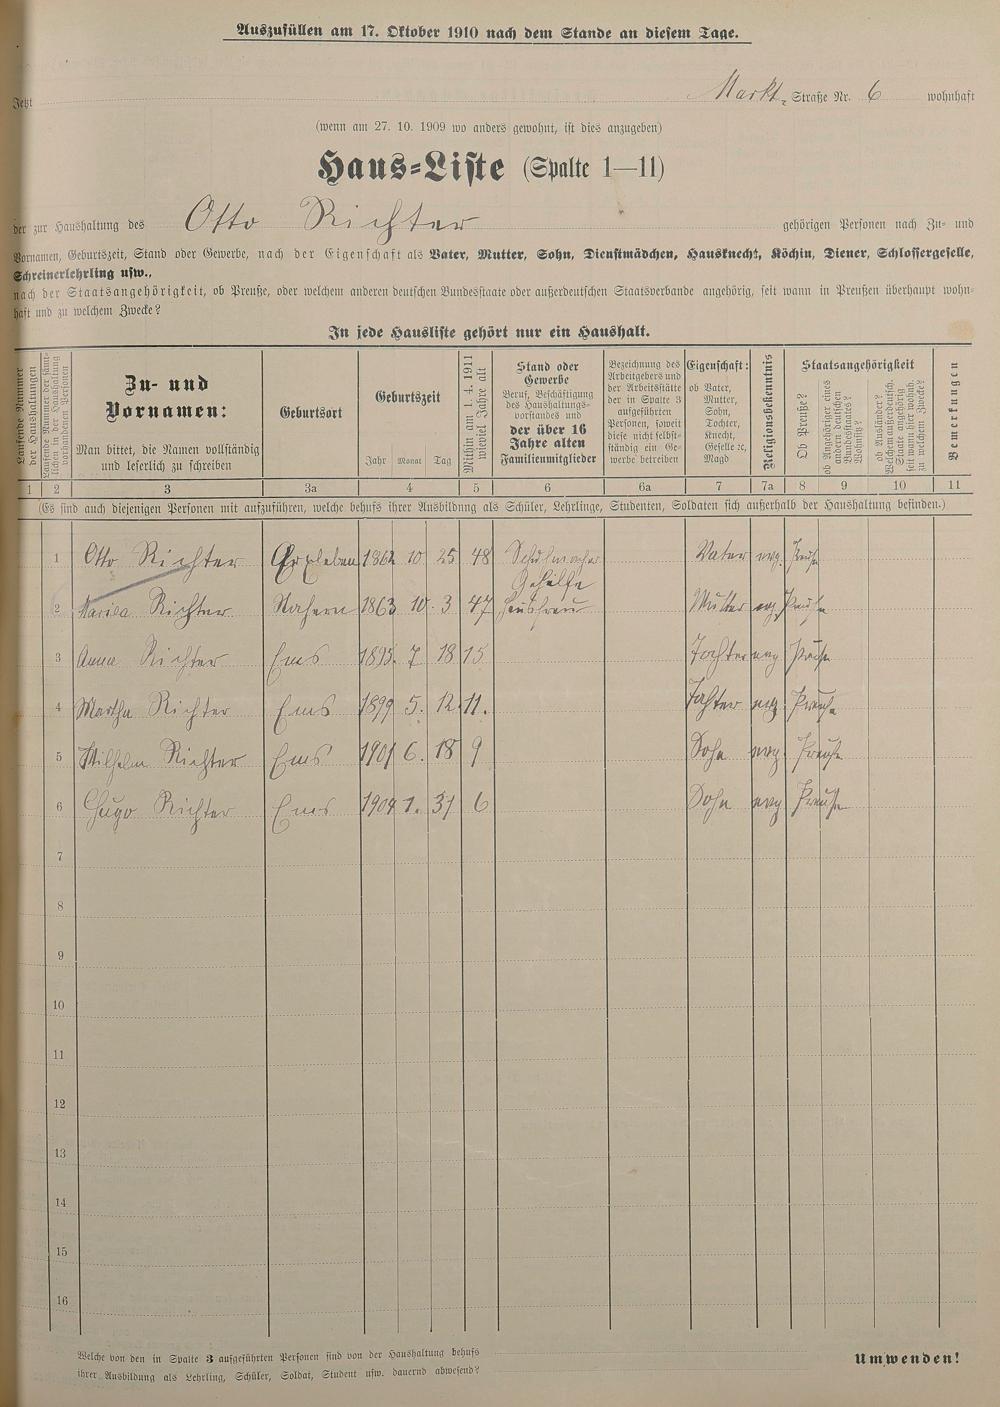 Auszufüllen am 17. Oktober 1910 nach dem Stande an diesem Tage.
Jetzt Markt- Straße Nr. 6 wohnhaft
(wenn am 27. 10. 1909 wo anders gewohnt, ist dies anzugeben)
Haus-Liste (Spalte 1—11)
der zur Haushaltung des Otto Richter gehörigen Personen nach Zu- und
Vornamen, Geburtszeit, Stand oder Gewerbe, nach der Eigenschaft als Vater, Mutter, Sohn, Dienstmädchen, Hausknecht, Köchin, Diener, Schlossergeselle,
Schreinerlehrling usw.,
nach der Staatsangehörigkeit, ob Preuße, oder welchem anderen deutschen Bundesstaate oder außerdeutschen Staatsverbande angehörig, seit wann in Preußen überhaupt wohn-
haft und zu welchem Zwecke?
In jede Hausliste gehört nur ein Haushalt.
Laufende Nummer
der Haushaltungen
Laufende Nummer der sämt-
lichen in der Haushaltung
vorhandenen Personen
Zu- und
Vornamen:
Man bittet, die Namen vollständig
und leserlich zu schreiben
Geburtsort
Geburtszeit
Jahr Monat Tag
Mithin am 1. 4. 1911
wieviel Jahre alt
Stand oder
Gewerbe
Beruf, Beschäftigung
des Haushaltungs-
vorstandes und
der über 16
Jahre alten
Familienmitglieder
Bezeichnung des
Arbeitgebers und
der Arbeitsstätte
der in Spalte 3
aufgeführten
Personen, soweit
diese nicht selbst-
ständig ein Ge-
werbe betreiben
Eigenschaft:
ob Vater,
Mutter,
Sohn,
Tochter,
Knecht,
Geselle ꝛc,
Magd
Religionsbekenntnis
Staatsangehörigkeit
Ob Preuße?
ob Angehöriger eines
andern deutschen
Bundesstaates?
Wohnsitz?
ob Ausländer?
Welchem außerdeutsch.
Staate angehörig
seit wann hier wohnh.
zu welchem Zwecke?
Bemerkungen
1 2 3 3a 4 5 6 6a 7 7a 8 9 10 11
(Es sind auch diejenigen Personen mit aufzuführen, welche behufs ihrer Ausbildung als Schüler, Lehrlinge, Studenten, Soldaten sich außerhalb der Haushaltung befinden.)
1 Otto Richter Erxleben 1862 10 25 48 Schuhmacher Vater evg. Preuße
Gehilfe
2 Maria Richter Nahern 1863 10. 3 47 Hausfrau Mutter evg. Preuße
3 Anna Richter Ems 1895. 7 18 15 Tochter evg Preuße
4 Martha Richter Ems 1899 5. 12. 11. Tochter evg. Preuße
5 Wilhelm Richter Ems 1901 6. 18 9 Sohn evg. Preuße
6 Hugo Richter Ems 1904 1. 31 6 Sohn evg Preuße
7
8
9
10
11
12
13
14
15
16
Welche von den in Spalte 3 aufgeführten Personen sind von der Haushaltung behufs
ihrer Ausbildung als Lehrling, Schüler, Soldat, Student usw. dauernd abwesend?
Umwenden!